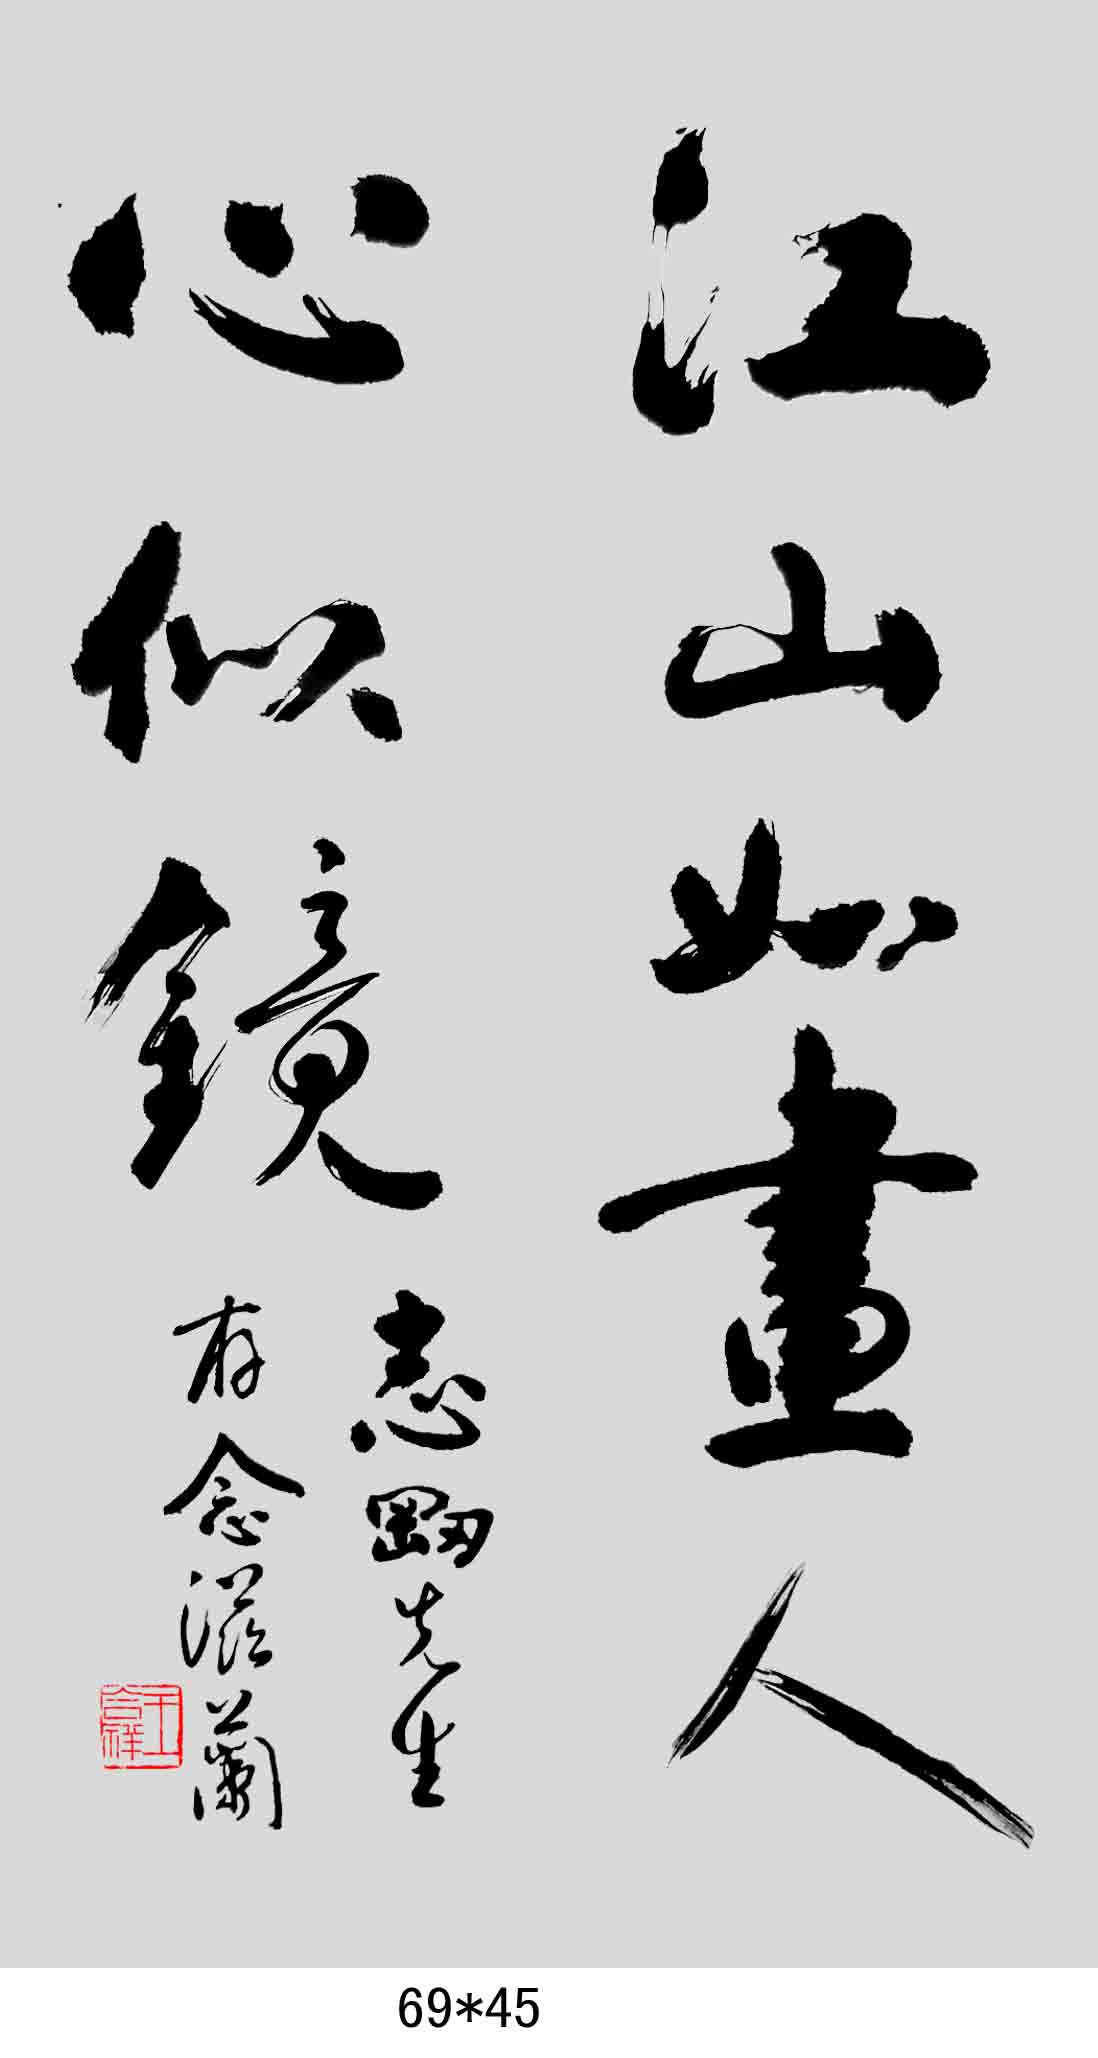 江山如畫人
心似鏡
志剛先生
存念滋蘭
69*45